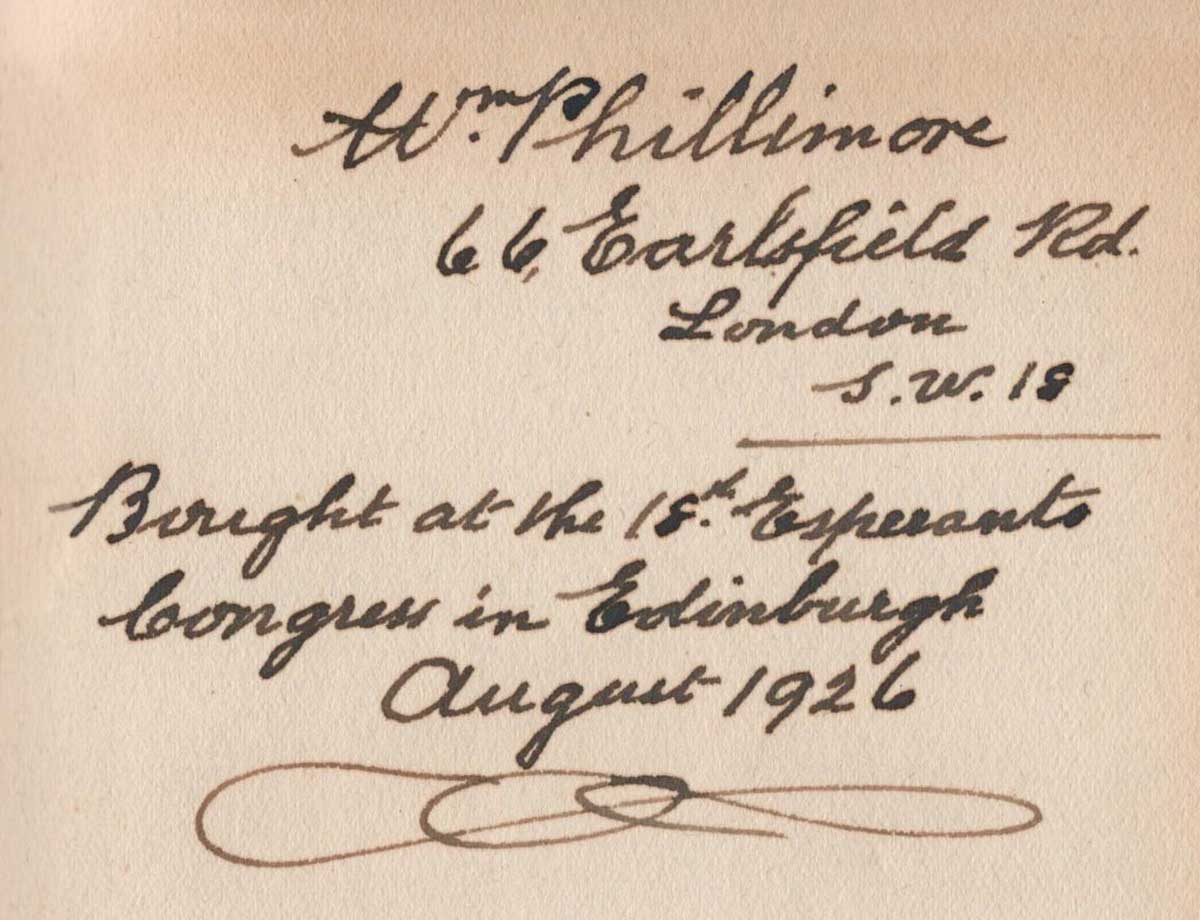 Wm. Phillimore
66, Earlsfield Rd.
London
S.W. 18
Bought at the 18th. Esperanto
Congress in Edinburgh
August 1926